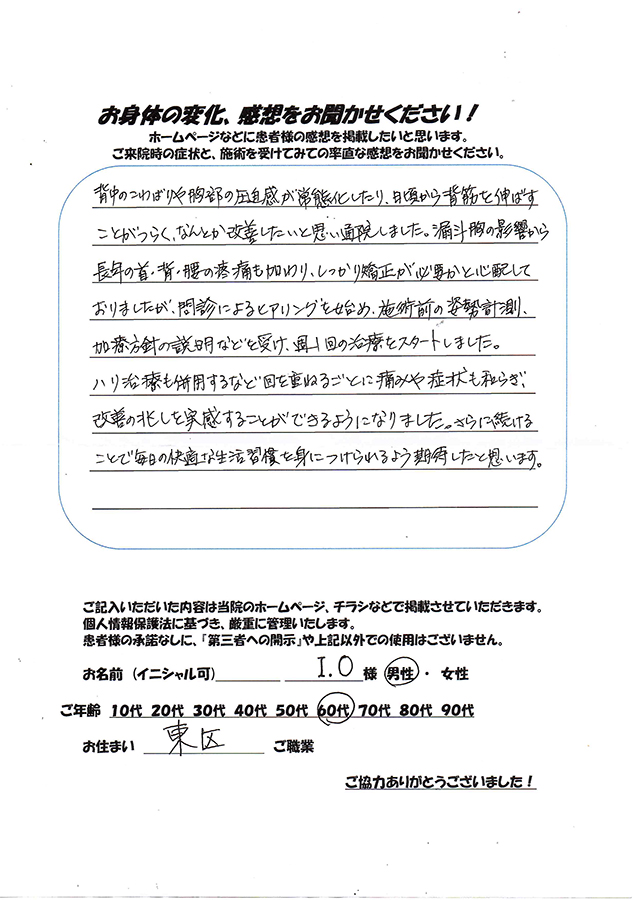 お身体の変化、感想をお聞かせください！
ホームページなどに患者様の感想を掲載したいと思います。
ご来院時の症状と、施術を受けてみての率直な感想をお聞かせください。
背中のこわばりや胸部の圧迫感が常態化したり、日頃から背筋を伸ばす
ことがつらく、なんとか改善したいと思い通院しました。漏斗胸の影響から
長年の首・背・腰の疼痛も加わり、しっかり矯正が必要かと心配して
おりましたが、問診によるヒアリングを始め、施術前の姿勢計測、
加療方針の説明などを受け、週1回の治療をスタートしました。
ハリ治療も併用するなど回を重ねるごとに痛みや症状も和らぎ、
改善の兆しを実感することができるようになりました。さらに続ける
ことで毎日の快適な生活習慣を身につけられるよう期待したと思います。
ご記入いただいた内容は当院のホームページ、チラシなどで掲載させていただきます。
個人情報保護法に基づき、厳重に管理いたします。
患者様の承諾なしに、「第三者への開示」や上記以外での使用はございません。
お名前（イニシャル可） I.O 様 男性・女性
ご年齢 10代 20代 30代 40代 50代 60代 70代 80代 90代
お住まい 東区 ご職業
ご協力ありがとうございました！